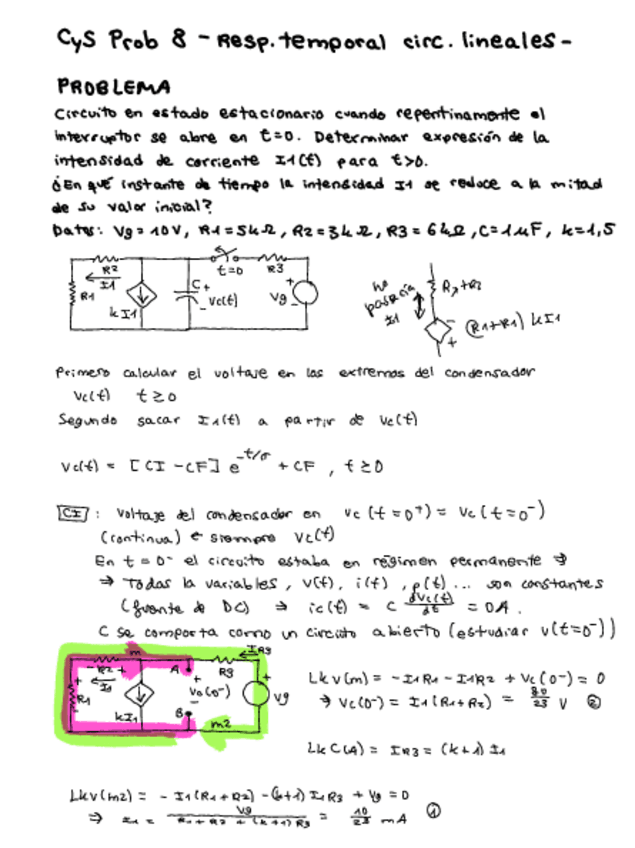 CyS Prob 8 - Resp. temporal circ. lineales -
PROBLEMA
Circuito en estado estacionario cuando repentinamente el
interruptor se abre en t=0. Determinar expresión de la
intensidad de corriente I1(t) para t>0.
¿En qué instante de tiempo la intensidad I1 se reduce a la mitad
de su valor inicial?
Datos: Vg=10V, R1=5kΩ, R2=3kΩ, R3=6kΩ, C=1μF, k=1,5
R2 I1 R1 kI1 C + - Vc(t) t=0 R3 Vg + -
I1 - + kI1
Primero calcular el voltaje en los extremos del condensador
Vc(t) t≥0
Segundo sacar I1(t) a partir de Vc(t)
Vc(t) = [CI - CF] e^-t/σ + CF , t≥0
CI : Voltaje del condensador en Vc(t=0+) = Vc(t=0-)
(continua) ← siempre Vc(t)
En t=0- el circuito estaba en régimen permanente →
⇒ Todas la variables, v(t), i(t), p(t)... son constantes
(fuente de DC) ⇒ ic(t) = C dVc(t)/dt = 0A.
C se comporta como un circuito abierto (estudiar v(t=0-))
m - R2 + I1 + R1 - kI1 A + Vo(0-) - B R3 IR3 + Vg - m2
LKV(m) = -I1R1 - I1R2 + Vc(0-) = 0
⇒ Vc(0-) = I1(R1+R2) = 80/23 V ②
LKC(A) = IR3 = (k+1) I1
LKV(m2) = - I1(R1+R2) - (k+1) I1R3 + Vg = 0
⇒ I1 = Vg / R1+R2+(k+1)R3 = 10/23 mA ①